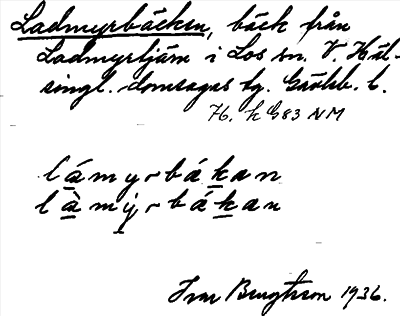 Ladmyrbäcken, bäck från
Ladmyrtjärn i Los sn. V. Häl-
singl. domsagas tg. Gävleb. l.
76. h G83 NM
lámyrbákan
làmýrbákan
Ivar Bengtsson 1936.